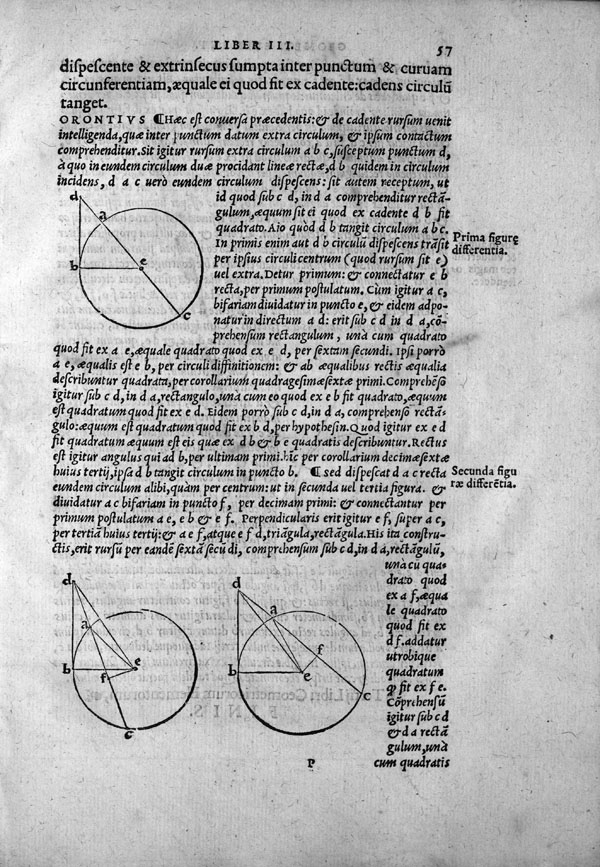 LIBER III.
57
dispescente & extrinsecus sumpta inter punctum & curuam
circunferentiam, æquale ei quod fit ex cadente: cadens circulũ
tanget.
ORONTIVS ¶Hæc est conuersa præcedentis: & de cadente rursum uenit
intelligenda, quæ inter punctum datum extra circulum, & ipsum contactum
comprehenditur. Sit igitur rursum extra circulum a b c, susceptum punctum d,
à quo in eundem circulum duæ procidant lineæ rectæ, d b quidem in circulum
incidens, d a c uerò eundem circulum dispescens: sit autem receptum, ut
id quod sub c d, in d a comprehenditur rectã-
gulum, æquum sit ei quod ex cadente d b fit
quadrato. Aio quòd d b tangit circulum a b c.
In primis enim aut d b circulũ dispescens trãsit
per ipsius circuli centrum (quod rursum sit e)
uel extra. Detur primum: & connectatur e b
recta, per primum postulatum. Cùm igitur a c,
bifariam diuidatur in puncto e, & eidem adpo-
natur in directum a d: erit sub c d in d a, cõ-
prehensum rectangulum, unà cum quadrato
quod fit ex a e, æquale quadrato quod ex e d, per sextam secundi. Ipsi porrò
a e, æqualis est e b, per circuli diffinitionem: & ab æqualibus rectis æqualia
describuntur quadrata, per corollarium quadragesimæsextæ primi. Comprehẽso
igitur sub c d, in d a, rectangulo, unà cum eo quod ex e b fit quadrato, æquum
est quadratum quod fit ex e d. Eidem porrò sub c d, in d a, comprehenso rectã-
gulo: æquum est quadratum quod fit ex b d, per hypothesin. Quod igitur ex e d
fit quadratum æquum est eis quæ ex d b & b e quadratis describuntur. Rectus
est igitur angulus qui ad b, per ultimam primi. hic per corollarium decimæsextæ
huius tertij, ipsa d b tangit circulum in puncto b. ¶ sed dispescat d a c recta
eundem circulum alibi, quàm per centrum: ut in secunda uel tertia figura. &
diuidatur a c bifariam in puncto f, per decimam primi: & connectantur per
primum postulatum a e, e b & e f. Perpendicularis erit igitur e f, super a c,
per tertiã huius tertij: & a e f, atque e f d, triãgula, rectãgula. His ita constru-
ctis, erit rursũ per eandẽ sextã secũdi, comprehensum sub c d, in d a, rectãgulũ,
unà cũ qua-
drato quod
ex a f, æqua
le quadrato
quod fit ex
d f. addatur
utrobique
quadratum
ꝙ fit ex f e.
Cõprehensũ
igitur sub c d
& d a rectã
gulum, unà
cum quadratis
Prima figuræ
differentia.
Secunda figu
ræ differẽtia.
d
a
b
e
c
d
a
b
e
f
c
d
a
f
b
e
c
P